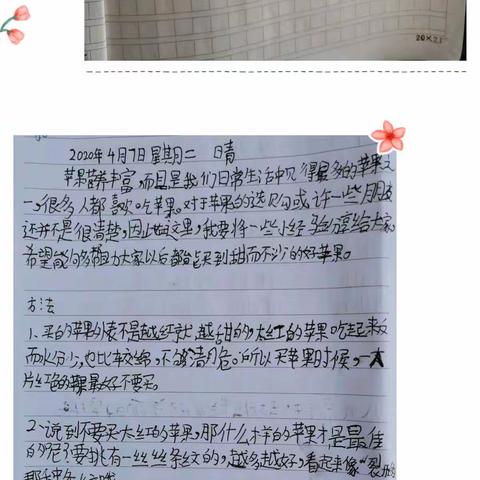 20×21
2020年4月7日 星期二 晴
苹果营养丰富,而且是我们日常生活中见得最多的苹果之
一,很多人都喜欢吃苹果。对于苹果的选购或许一些朋友
还并不是很清楚,因此在这里,我要将一些小经验分享给大家,
希望能够帮助大家以后都能买到甜而不沙的好苹果。
方法
1、买的苹果外表不是越红就越甜的,太红的苹果吃起来反
而水分少,也比较绵,不够清脆。所以买苹果时候,一大
片红色的苹果最好不要买。
2、说到不要买大红的苹果,那什么样的苹果才是最佳
的呢?要挑有一丝丝条纹的,越多越好,看起来像“裂